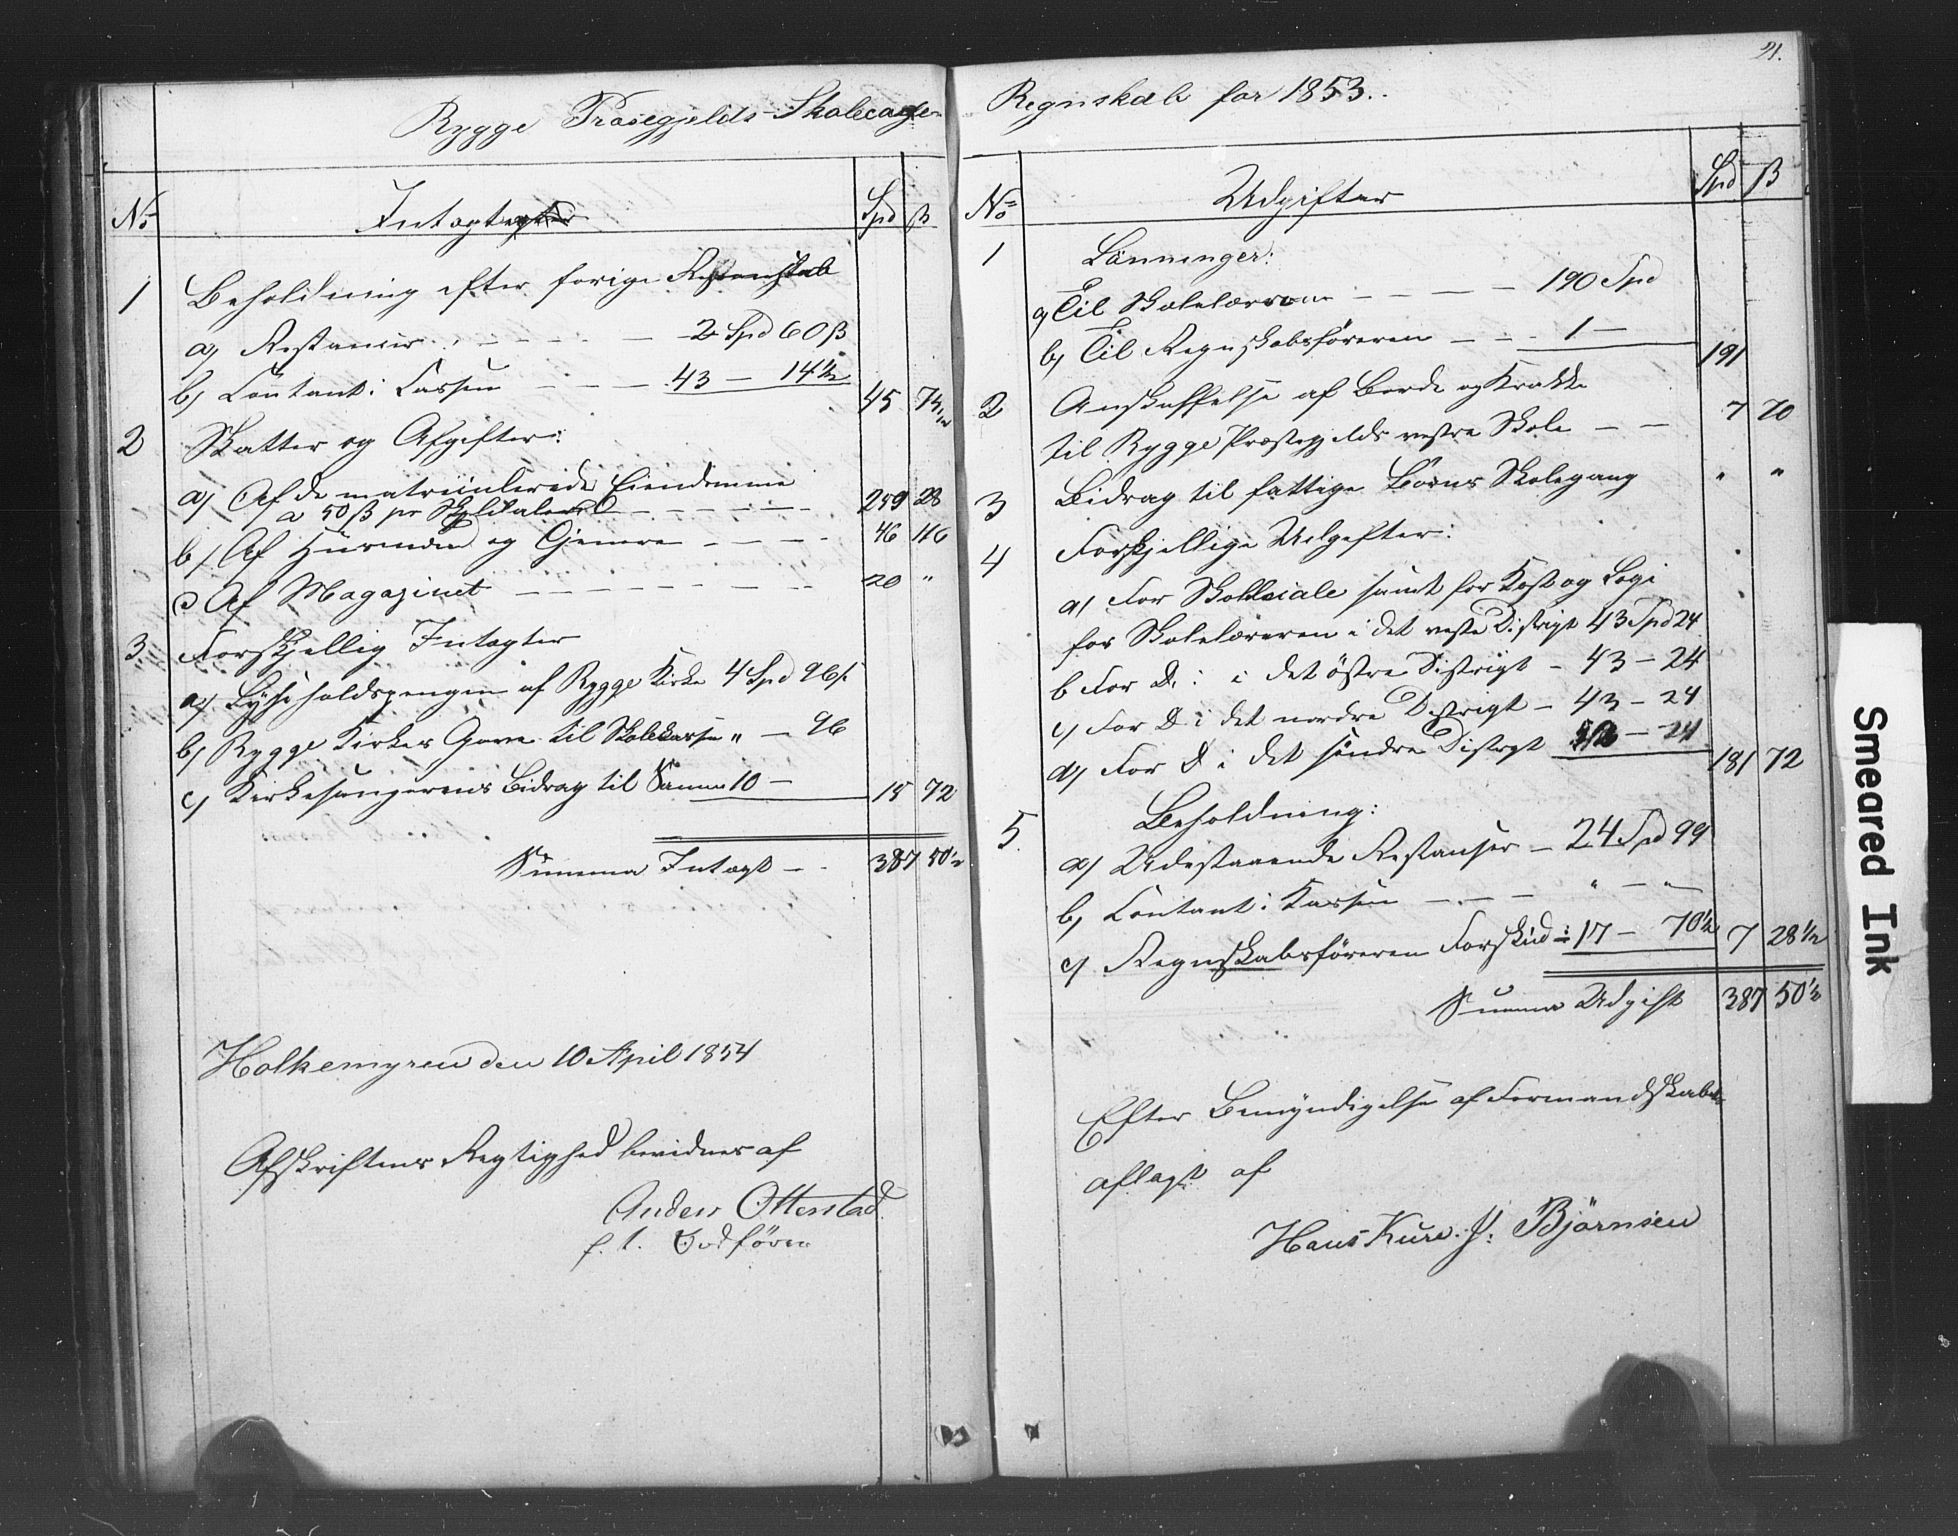 Rygge Præsegjelds Skolecasse
No Indtægter Spd ß
1 Beholdning efter forrige Regnskab
a) Restancer - - - - 2 Spd 60 ß
b) Contant i Cassen - - - 43 - 14 1/2 45 74 1/2
2 Skatter og Afgifter:
a) Af de matriculerede Eiendomme
a 50 ß pr Skylddaler - - - - 259 28
b) Af Husmænd og Tjenere - - - - 46 116
c) Af Magazinet - - - - - - 20 "
3 Forskjellig Indtægter
a) Lyseholdspengene af Rygge Kirke 4 Spd 96 ß
b) Rygge Kirkes Gave til Skolekassen " - 96
c) Kirkesangerens Bidrag til Samme 10 - 15 72
Summa Indtægt - - 387 50 1/2
Holkemyren den 10 April 1854
Afskriftens Regtighed bevidnes af
Anders Ottersted
f. t. Ordfører
21.
Regnskab for 1853.
No Udgifter Spd ß
1 Lönninger:
a) Til Skolelærerne - - - - 190 Spd
b) Til Regnskabsföreren - - - 1 - 191
2 Anskaffelse af Borde og Krakke
til Rygge Præstegjelds vestre Skole - - 7 70
3 Bidrag til fattige Börns Skolegang " "
4 Forskjellige Udgifter:
a) For Skolelocale samt for Kost og Logi
for Skolelæreren i det vestre Distrigt 43 Spd 24
b For D. i det østre Distrigt - 43 - 24
c) For D i det nordre Distrigt - 43 - 24
d) For D i det søndre Distrigt - 24 181 72
5 Beholdning:
a) Udestaaende Restanser - 24 Spd 99
b) Contant i Kassen - - - " - " -
c) Regnskabsföreren Forskud ÷ 17 - 70 1/2 7 28 1/2
Summa Udgift 387 50 1/2
Efter Bemyndigelse af Formandskabet
aflagt af
Hans Kure. J. Björnsen
Smeared Ink